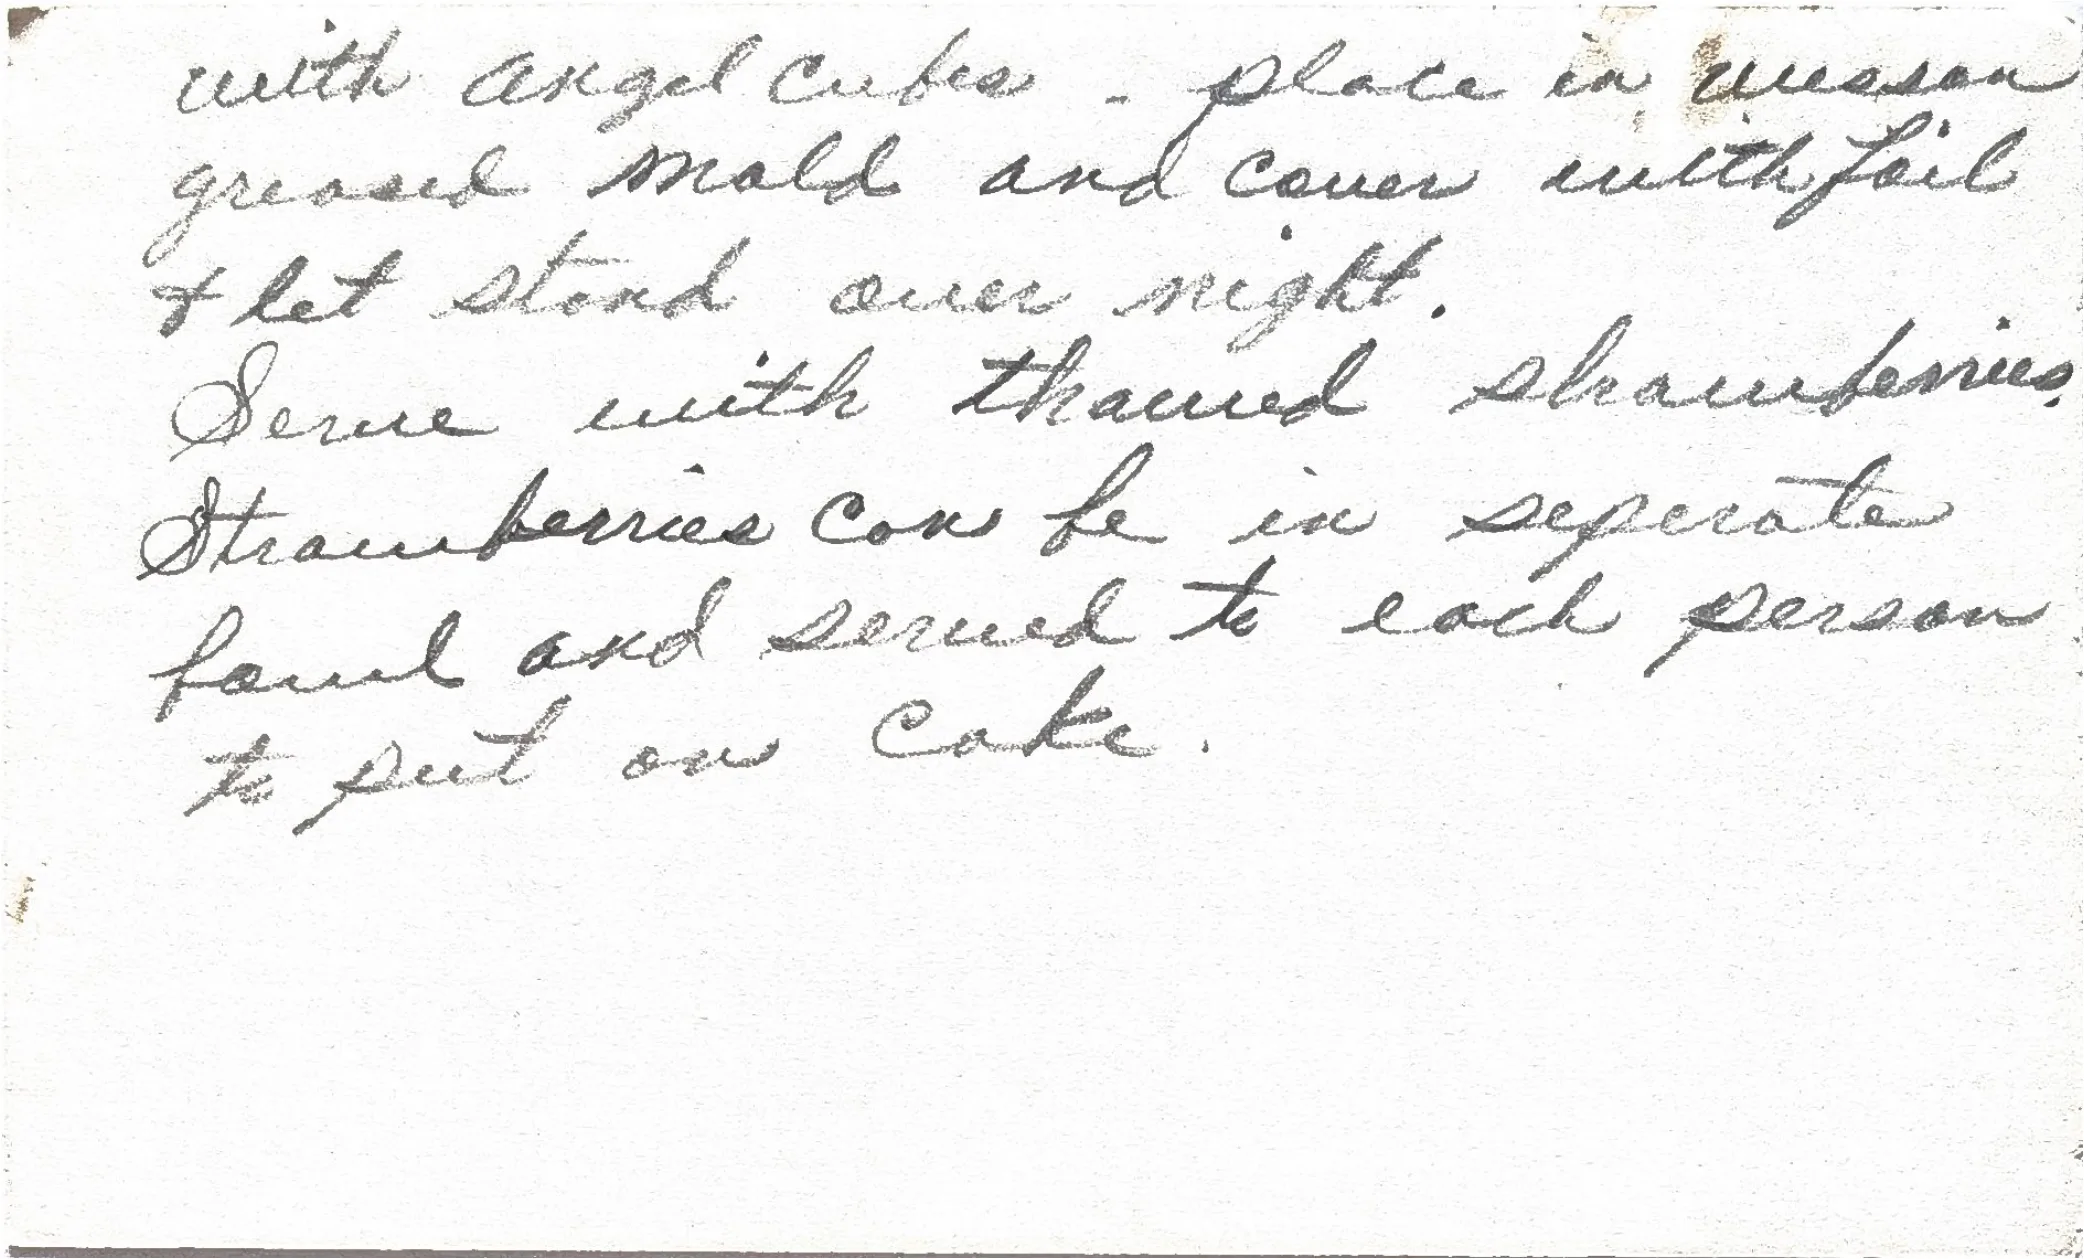 with angel cubes - place in wesson
greased mold and cover with foil
& let stand over night.
Serve with thawed strawberries.
Strawberries can be in seperate
bowl and served to each person
to put on cake.